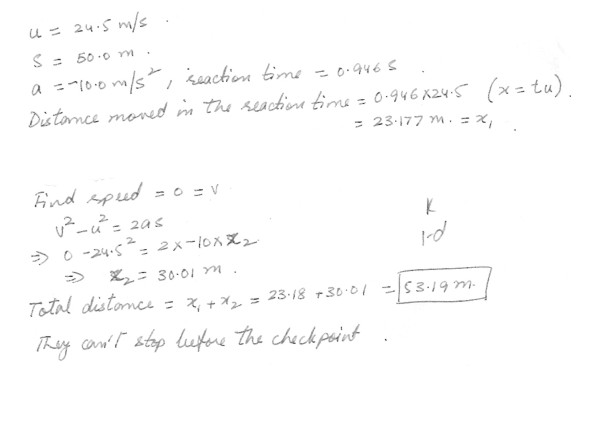 u = 24.5 m/s .
S = 50.0 m .
a = -10.0 m/s², reaction time = 0.946 s .
Distance moved in the reaction time = 0.946 x 24.5 (x = tu).
= 23.177 m. = x₁ .
Find speed = 0 = v
v² - u² = 2as
⇒ 0 - 24.5² = 2 x -10 x x₂
⇒ x₂ = 30.01 m .
K
1-d
Total distance = x₁ + x₂ = 23.18 + 30.01 = 53.19 m.
They can't stop before the checkpoint .